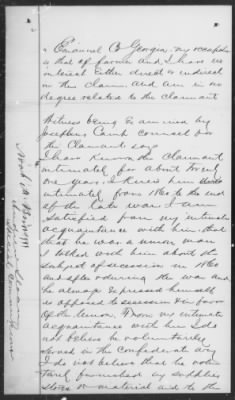 Emanuel Co Georgia, my occupation
is that of farmer and I have no
interest Either direct or indirect
in this Claim and am in no
degree related to the claimant
Witness being Examined by
Counsel for
the Claimant says
I have Known the Claimant
intimately for about twenty
one years, I Knew him
intimately from 1860 to the end
of the late war I am
satisfied from my intimate
acquaintance with him that
that he was a union man
I talked with him about the
subject of secession in 1860
and after during the war and
he always Expressed himself
as opposed to secession & in favor
of the Union. From my intimate
acquaintance with him I do
not believe he voluntarily
served in the Confederate army
I do not believe that he volun
tarily furnished any supplies
stores or material and to the